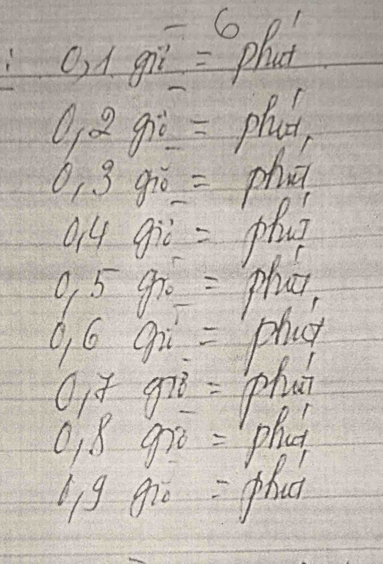 0,1 giờ = 6 phút
0,2 giờ = phút
0,3 giờ = phút
0,4 giờ = phút
0,5 giờ = phút
0,6 giờ = phút
0,7 giờ = phút
0,8 giờ = phút
0,9 giờ = phút